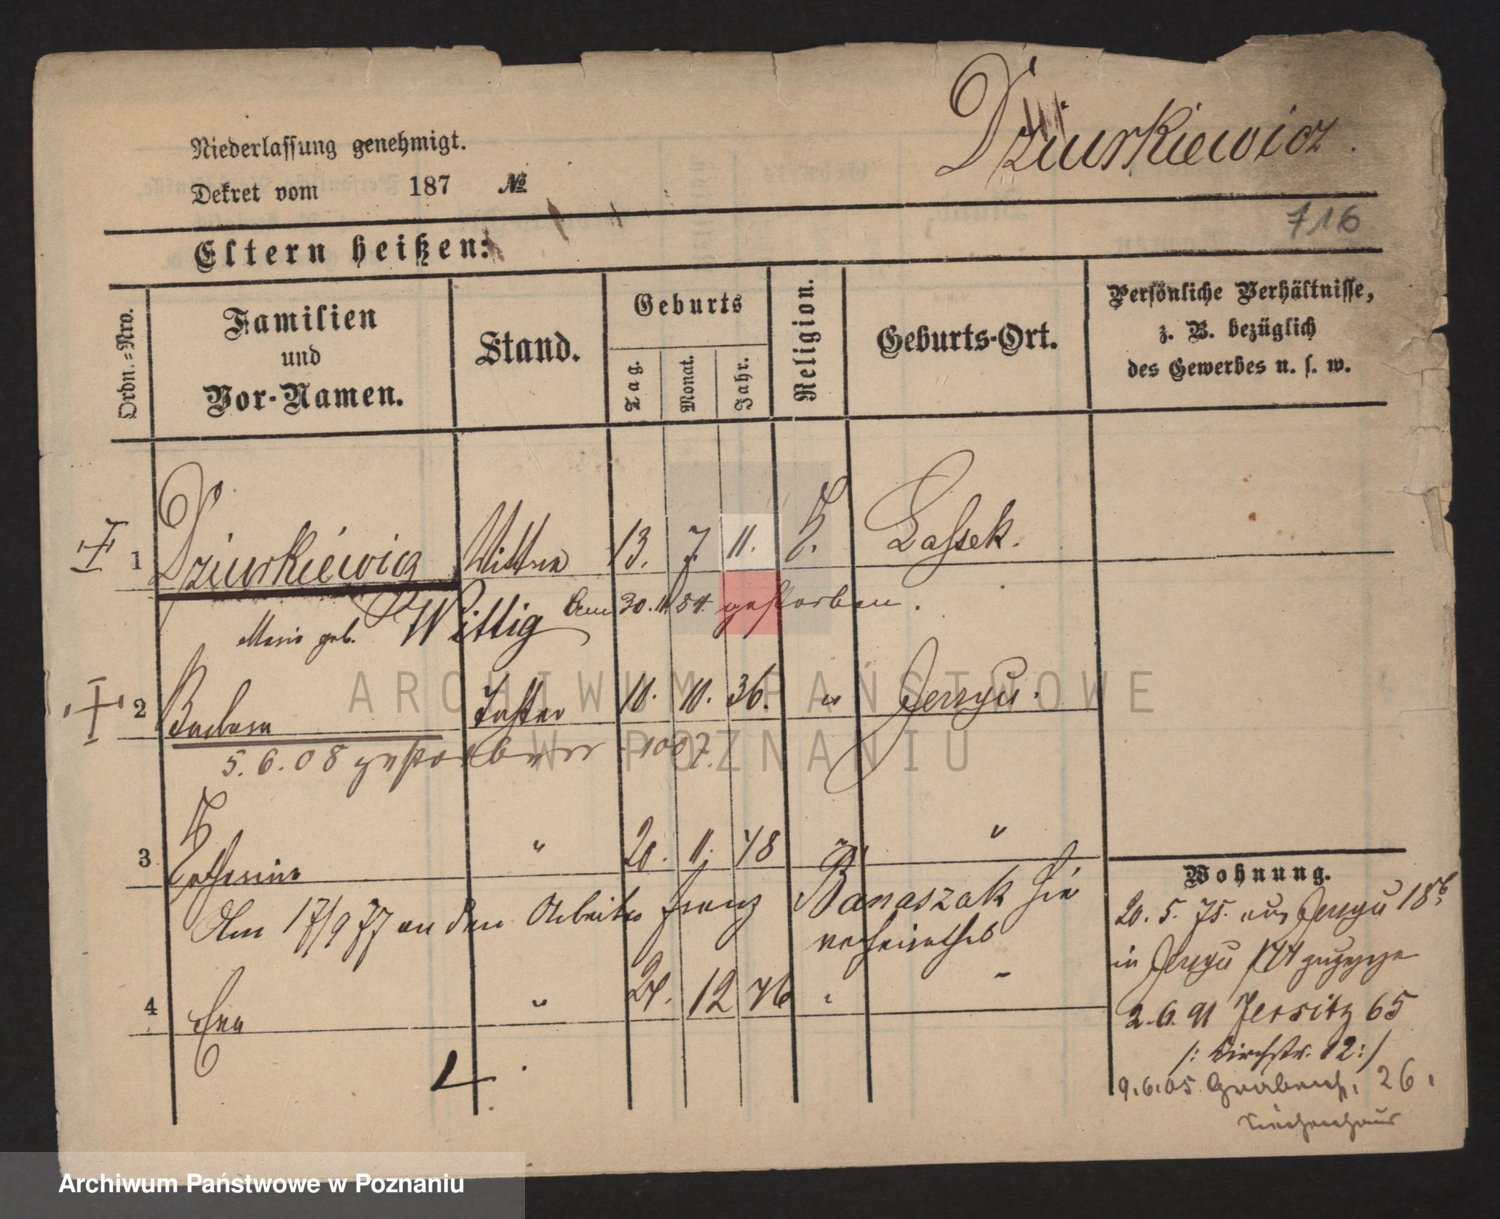 Dziurkiewicz.
Niederlassung genehmigt.
Dekret vom 187 №
716
Eltern heißen:
Ordn.=Nro.
Familien
und
Vor-Namen.
Stand.
Geburts
Tag.
Monat.
Jahr.
Religion.
Geburts-Ort.
Persönliche Verhältnisse,
z. B. bezüglich
des Gewerbes u. s. w.
1 Dziurkiewicz Wittwe 13. 7. 11. k. Lassek.
Marie geb. Wittig Am 30. 11. 84 gestorben.
2 Barbara Tochter 10. 10. 36. " Jerzyce.
5.6.08 gestorben 1007
3 Catharina " 20. 11. 48 " "
Am 17/9 77 an den Arbeiter Franz Banaszak hie
verheirathet
4 Eva " 24. 12 46 " "
Wohnung.
20. 5. 75. aus
in
2.6.91 Jersitz 65
/: Kirchstr. 12 :/
9.6.05. 26.
Siechenhaus
ARCHIWUM PAŃSTWOWE
W POZNANIU
Archiwum Państwowe w Poznaniu